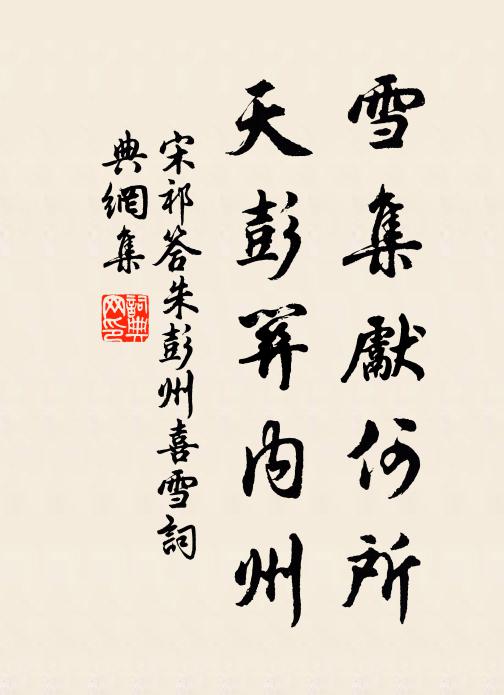 雪集獻何所
天彭内州
宋祁答朱彭州喜雪詞
典網集
詞典
网印